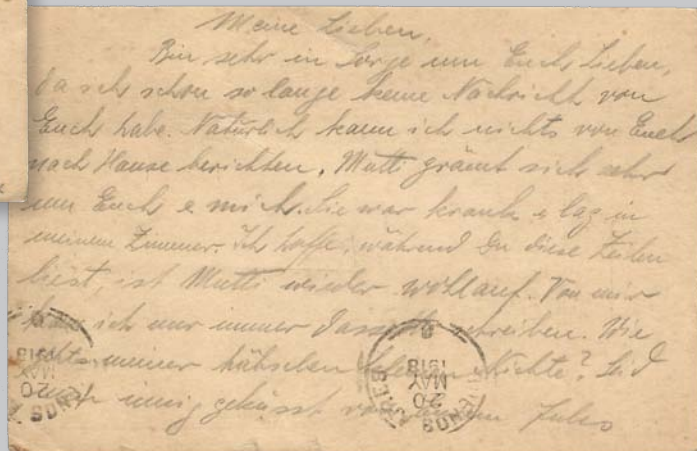 Meine Lieben,
Bin sehr in Sorge um Euch Lieben,
da ich schon so lange keine Nachricht von
Euch habe. Natürlich kann ich nichts von Euch
nach Hause berichten. Mutti grämt sich sehr
um Euch e mich. Sie war krank e lag in
meinem Zimmer. Ich hoffe, während Du diese Zeilen
liest, ist Mutti wieder wohlauf. Von mir
kann ich nur immer dasselbe schreiben. Wie
meiner hübschen kleinen Nichte? Seid
innig geküsst von Jules
20
MAY
1918
BUENOS AIRES
20
MAY
1918